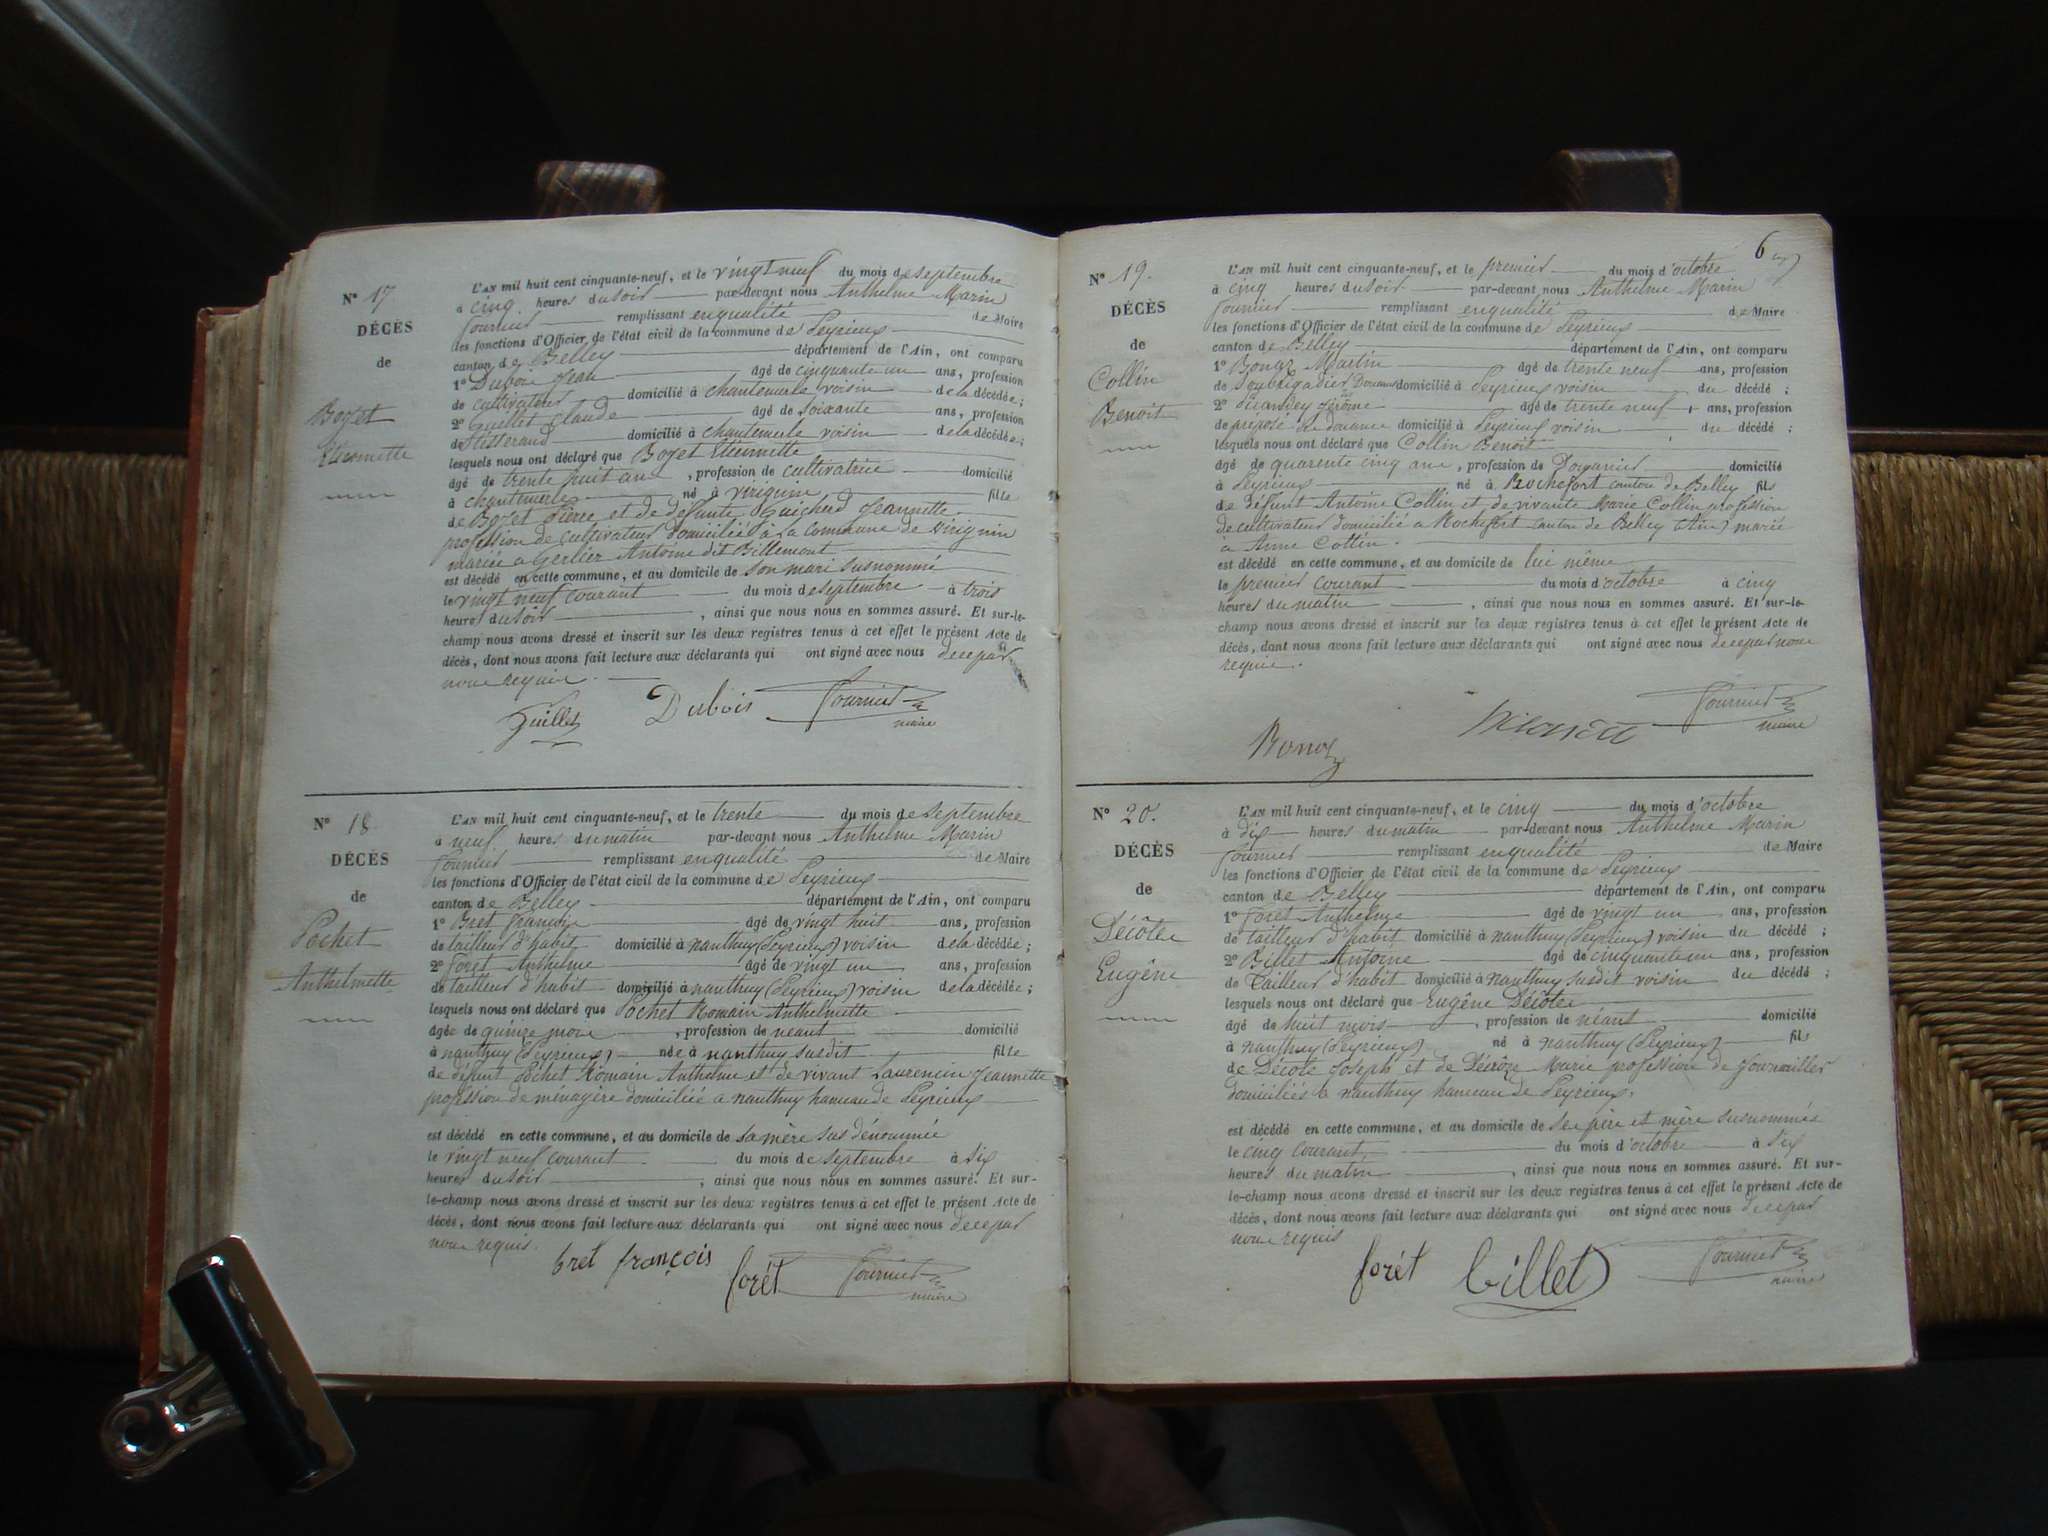 N° 17
DÉCÈS
de
Bozet
Etiennette
L'AN mil huit cent cinquante-neuf, et le vingt neuf du mois de septembre
à cinq heures du soir par-devant nous Anthelme Marin
Fournier remplissant en qualité de Maire
les fonctions d'Officier de l'état civil de la commune de Peyrieux
canton de Belley département de l'Ain, ont comparu
1° Dubois Jean âgé de cinquante un ans, profession
de cultivateur domicilié à chantemerle voisin de la décédée;
2° Guillet Claude âgé de soixante ans, profession
de tisserand domicilié à chantemerle voisin de la décédée;
lesquels nous ont déclaré que Bozet Etiennette
âgé de trente huit ans, profession de cultivatrice domicilié
à chantemerle né à virignin fille
de Bozet Pierre et de defunte Guicherd Jeannette
profession de cultivateur domicilié à la commune de virignin
mariée a Gerlier Antoine dit Billemont
est décédé en cette commune, et au domicile de son mari susnommé
le vingt neuf courant du mois de septembre à trois
heures du soir, ainsi que nous nous en sommes assuré. Et sur-le-
champ nous avons dressé et inscrit sur les deux registres tenus à cet effet le présent Acte de
décès, dont nous avons fait lecture aux déclarants qui ont signé avec nous de ce par
nous requis.
Guillet Dubois Fournier
maire
N° 18
DÉCÈS
de
Pochet
Anthelmette
L'AN mil huit cent cinquante-neuf, et le trente du mois de septembre
à neuf heures du matin par-devant nous Anthelme Marin
Fournier remplissant en qualité de Maire
les fonctions d'Officier de l'état civil de la commune de Peyrieux
canton de Belley département de l'Ain, ont comparu
1° Bret François âgé de vingt huit ans, profession
de tailleur d'habit domicilié à nanthuy (Peyrieux) voisin de la décédée;
2° Foret Anthelme âgé de vingt un ans, profession
de tailleur d'habit domicilié à nanthuy (Peyrieux) voisin de la décédée;
lesquels nous ont déclaré que Pochet Romain Anthelmette
âgée de quinze mois, profession de néant domicilié
à nanthuy (Peyrieux) née à nanthuy susdit fille
de défunt Pochet Romain Anthelme et de vivant Laurencin Jeannette
profession de ménagère domiciliée à nanthuy hameau de Peyrieux
est décédé en cette commune, et au domicile de sa mère sus dénommée
le vingt neuf courant du mois de septembre à six
heures du soir, ainsi que nous nous en sommes assuré. Et sur-
le-champ nous avons dressé et inscrit sur les deux registres tenus à cet effet le présent Acte de
décès, dont nous avons fait lecture aux déclarants qui ont signé avec nous de ce par
nous requis.
bret françois forét Fournier
maire
6
N° 19.
DÉCÈS
de
Collin
Benoit
L'AN mil huit cent cinquante-neuf, et le premier du mois d'octobre
à cinq heures du soir par-devant nous Anthelme Marin
Fournier remplissant en qualité de Maire
les fonctions d'Officier de l'état civil de la commune de Peyrieux
canton de Belley département de l'Ain, ont comparu
1° Bonoz Martin âgé de trente neuf ans, profession
de domicilié à Peyrieux voisin du décédé;
2° Jérôme âgé de trente neuf ans, profession
de préposé de douane domicilié à Peyrieux voisin du décédé;
lesquels nous ont déclaré que Collin Benoit
âgé de quarente cinq ans, profession de Douanier domicilié
à Peyrieux né à Rochefort canton de Belley fils
de défunt Antoine Collin et de vivante Marie Collin profession
de cultivateur domicilié a Rochefort canton de Belley (Ain) marié
à Anne Cottin.
est décédé en cette commune, et au domicile de lui même
le premier courant du mois d'octobre à cinq
heures du matin, ainsi que nous nous en sommes assuré. Et sur-le-
champ nous avons dressé et inscrit sur les deux registres tenus à cet effet le présent Acte de
décès, dont nous avons fait lecture aux déclarants qui ont signé avec nous de ce par nous
requis.
Bonoz Fournier
maire
N° 20.
DÉCÈS
de
Décôte
Eugène
L'AN mil huit cent cinquante-neuf, et le cinq du mois d'octobre
à dix heures du matin par-devant nous Anthelme Marin
Fournier remplissant en qualité de Maire
les fonctions d'Officier de l'état civil de la commune de Peyrieux
canton de Belley département de l'Ain, ont comparu
1° Foret Anthelme âgé de vingt un ans, profession
de tailleur d'habit domicilié à nanthuy (Peyrieux) voisin du décédé;
2° Billet Antoine âgé de cinquante un ans, profession
de Tailleur d'habit domicilié à nanthuy susdit voisin du décédé;
lesquels nous ont déclaré que Eugène Décôte
âgé de huit mois, profession de néant domicilié
à nanthuy (Peyrieux) né à nanthuy (Peyrieux) fils
de Décote Joseph et de Décôte Marie profession de Journailler
domiciliés à nanthuy hameau de Peyrieux.
est décédé en cette commune, et au domicile de ses père et mère susnommés
le cinq courant du mois d'octobre à six
heures du matin, ainsi que nous nous en sommes assuré. Et sur-
le-champ nous avons dressé et inscrit sur les deux registres tenus à cet effet le présent Acte de
décès, dont nous avons fait lecture aux déclarants qui ont signé avec nous de ce par
nous requis
forét billet Fournier
maire